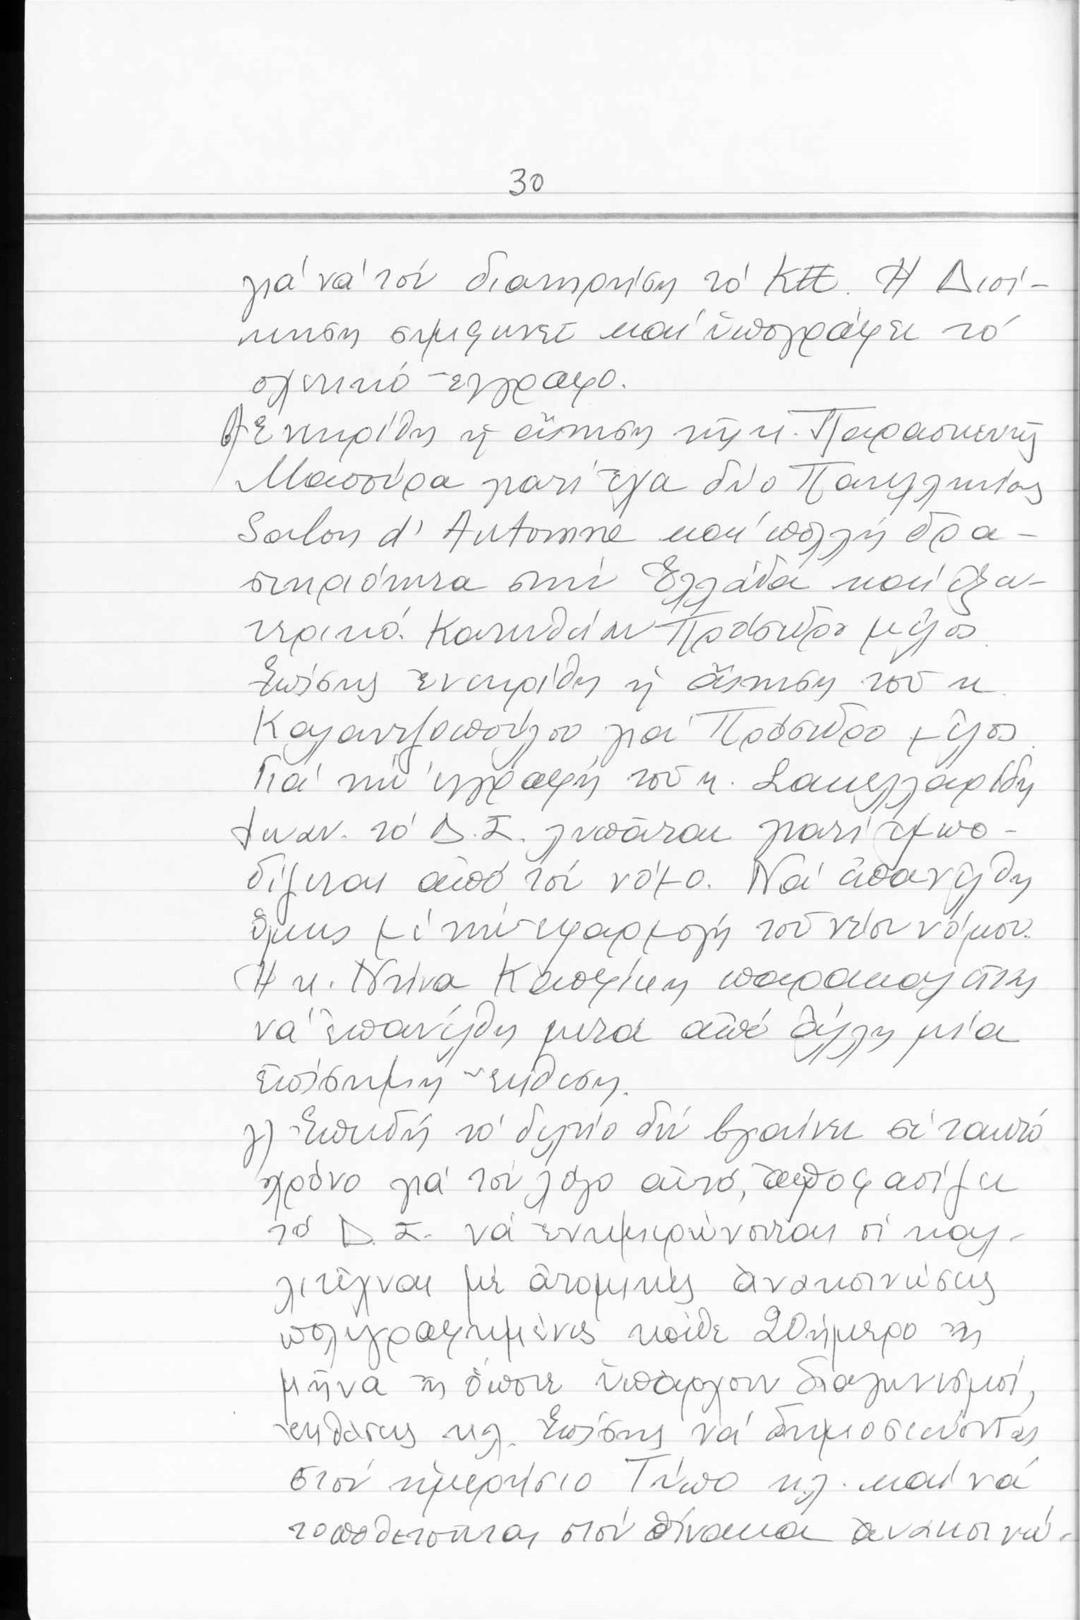 30
γιά νά τόν διατηρήση τό ΚΤΕ. Ἡ Διοί-
κηση συμφωνεῖ καί ὑπογράφει τό
σχετικό ἔγγραφο.
β) Ἐνεκρίθη ἡ αἴτηση τῆς κ. Παρασκευῆς
γιατί ἔχει δύο Πανελλήνιες
Salon d' Automne καί πολλή δρα-
στηριότητα στήν Ἑλλάδα καί ἐξω-
τερικό. Κατετάγη Πρόσεδρο μέλος
Ἐπίσης ἐνεκρίθη ἡ αἴτηση τοῦ κ.
Καλαντζοπούλου γιά Πρόσεδρο μέλος.
Γιά τήν ἐγγραφή τοῦ κ. Σακελλαρίδη
Ἰωάν. τό Δ.Σ. λυπᾶται γιατί ἐμπο-
δίζεται ἀπό τόν νόμο. Νά ἐπανέλθη
ὅμως μέ τήν ἐφαρμογή τοῦ νέου νόμου.
Ἡ κ. Ντίνα παρακαλεῖται
νά ἐπανέλθη μετά ἀπό ἄλλη μία
ἐπίσημη ἔκθεση.
γ) Ἐπειδή τό δελτίο δέν βγαίνει σέ τακτό
χρόνο γιά τόν λόγο αὐτό, ἀποφασίζει
τό Δ.Σ. νά ἐνημερώνονται οἱ καλ-
λιτέχναι μέ ἀτομικές ἀνακοινώσεις
πολυγραφημένες κάθε 20ήμερο ἤ
μῆνα ἤ ὅποτε ὑπάρχουν διαγωνισμοί,
ἐκθέσεις κλ. Ἐπίσης νά δημοσιεύονται
στόν ἡμερήσιο Τύπο κ.λ. καί νά
τοποθετοῦνται στόν πίνακα ἀνακοινώ-